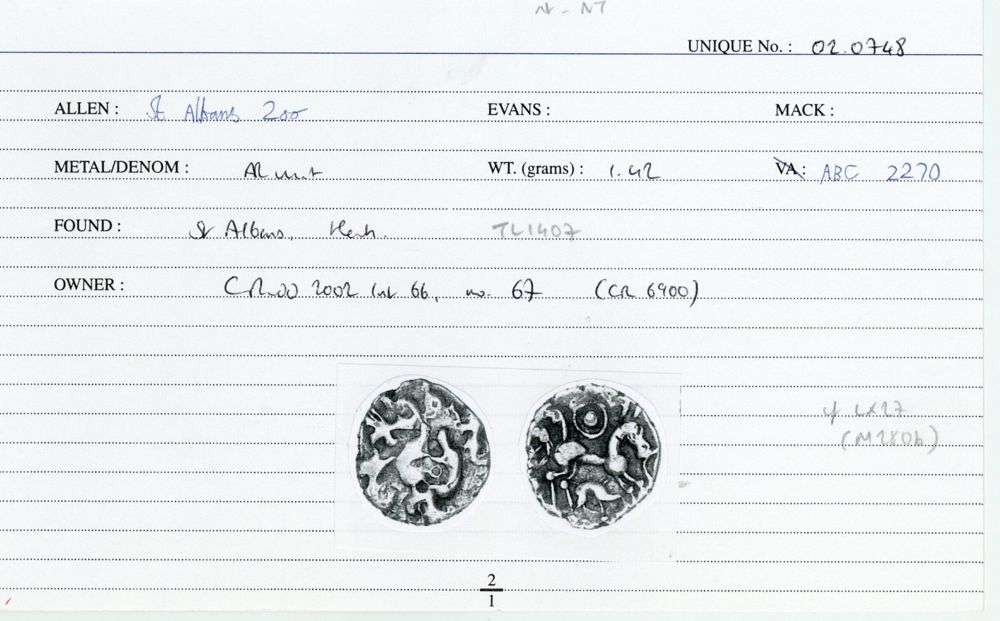 UNIQUE No. : 02.0748
ALLEN : St Albans 200 EVANS : MACK :
METAL/DENOM : AR unit WT. (grams) : 1.42 VA : ABC 2270
FOUND : St Albans, Herts. TL1407
OWNER : CR 2002 list 66, no. 67 (CR 6900)
LX27
(M280b)
2
1